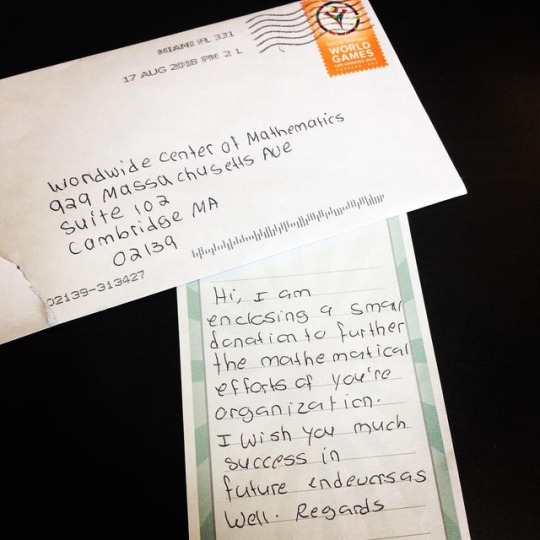 MIAMI FL 331
17 AUG 2018 PM 2 L
WORLD
GAMES
LOS ANGELES 2015
Worldwide Center of Mathematics
929 Massachusetts Ave
Suite 102
Cambridge MA
02139
02139-313427
Hi, I am
enclosing a small
donation to further
the mathematical
efforts of you're
organization.
I wish you much
success in
future endevors as
well. Regards